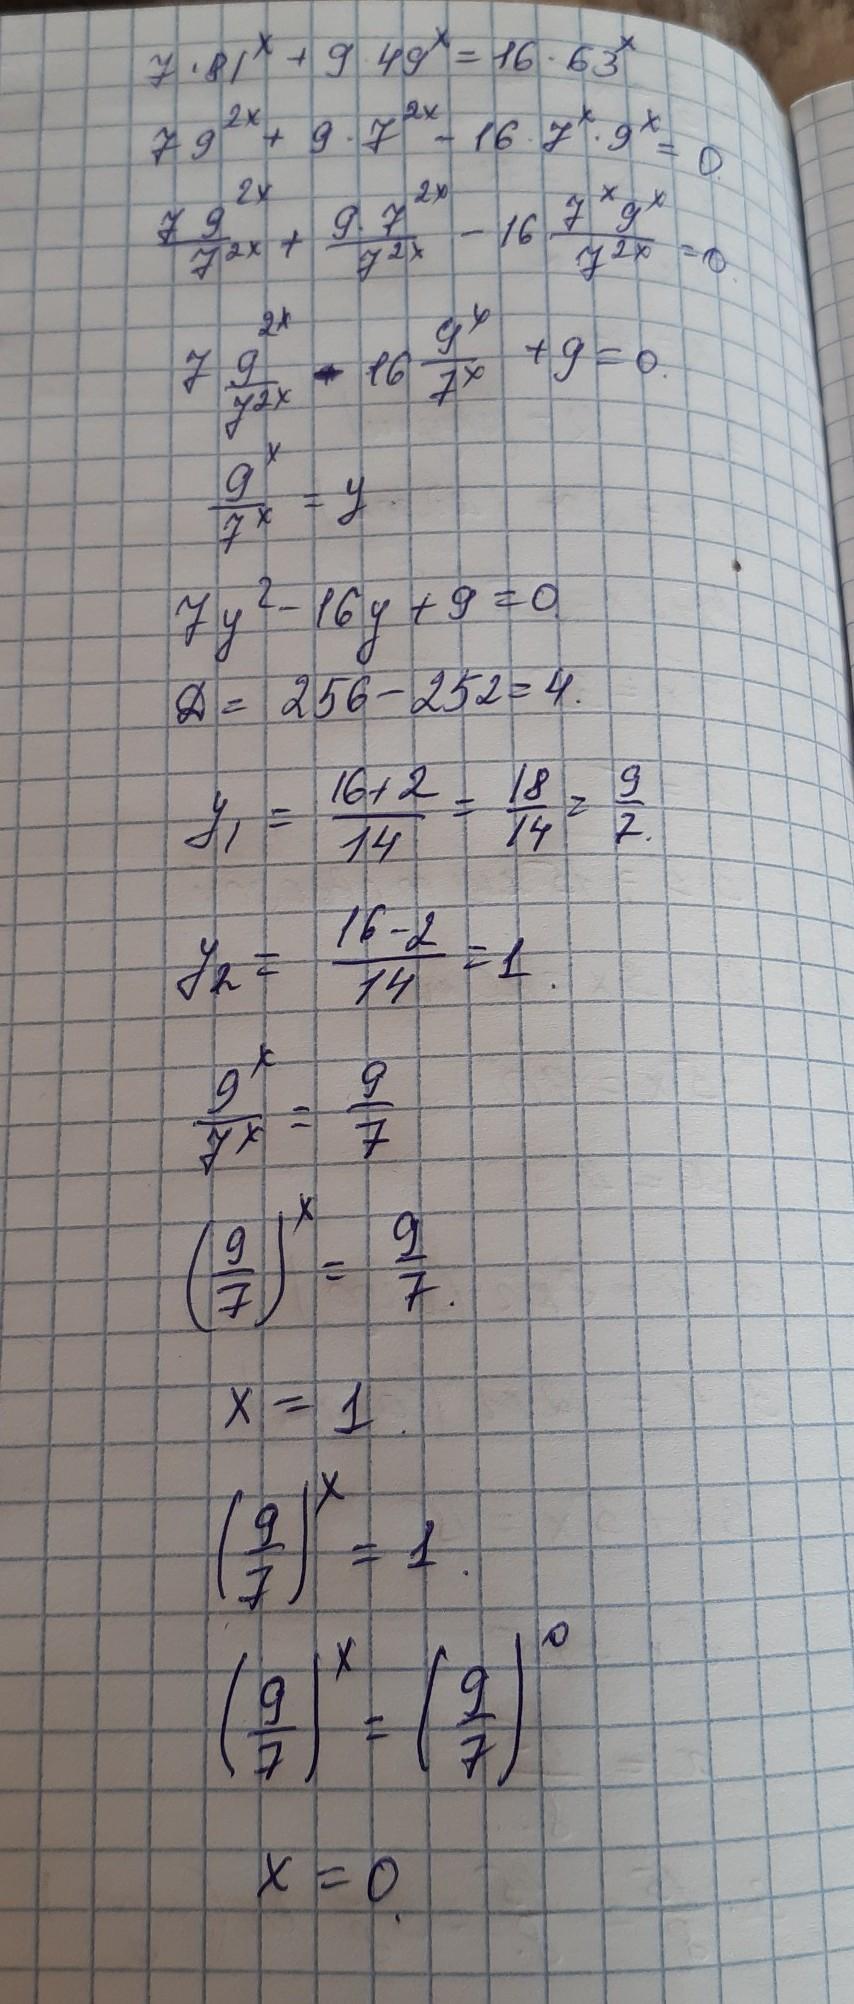 7·81^x + 9·49^x = 16·63^x
7 9^2x + 9·7^2x - 16·7^x·9^x = 0.
7 9^2x/7^2x + 9·7^2x/7^2x - 16 7^x 9^x/7^2x = 0.
7 9^2x/7^2x - 16 9^x/7^x + 9 = 0.
9^x/7^x = y.
7y² - 16y + 9 = 0
D = 256 - 252 = 4.
y₁ = 16+2/14 = 18/14 = 9/7.
y₂ = 16-2/14 = 1.
9^x/7^x = 9/7
(9/7)^x = 9/7.
x = 1.
(9/7)^x = 1.
(9/7)^x = (9/7)^0
x = 0.